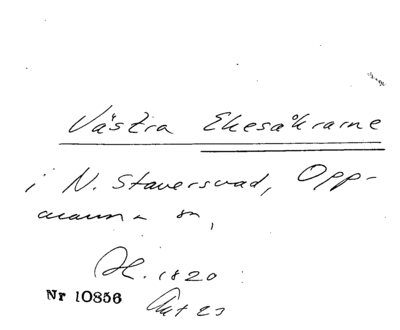 Västra Ekesåkrarne
i N. Staversvad, Opp-
manna sn,
Sk. 1820
Nr 10856
Akt 23